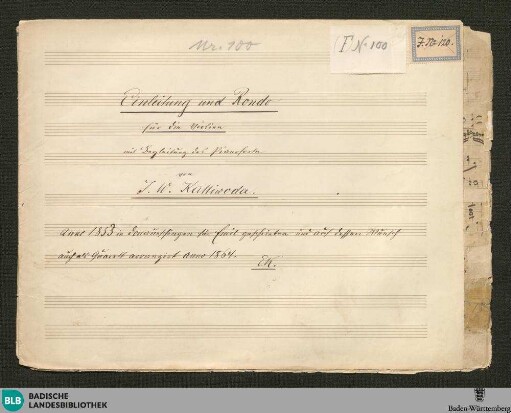 Nr. 100
F. N. 100
Einleitung und Rondo
für die Violine
mit Begleitung des Pianoforte
von
J. W. Kalliwoda.
Anno 1853 in Donaueschingen für Emil geschrieben und auf dessen Wunsch
auch als Quartett arrangirt Anno 1854.
EK.
BLB BADISCHE
LANDESBIBLIOTHEK
Baden-Württemberg